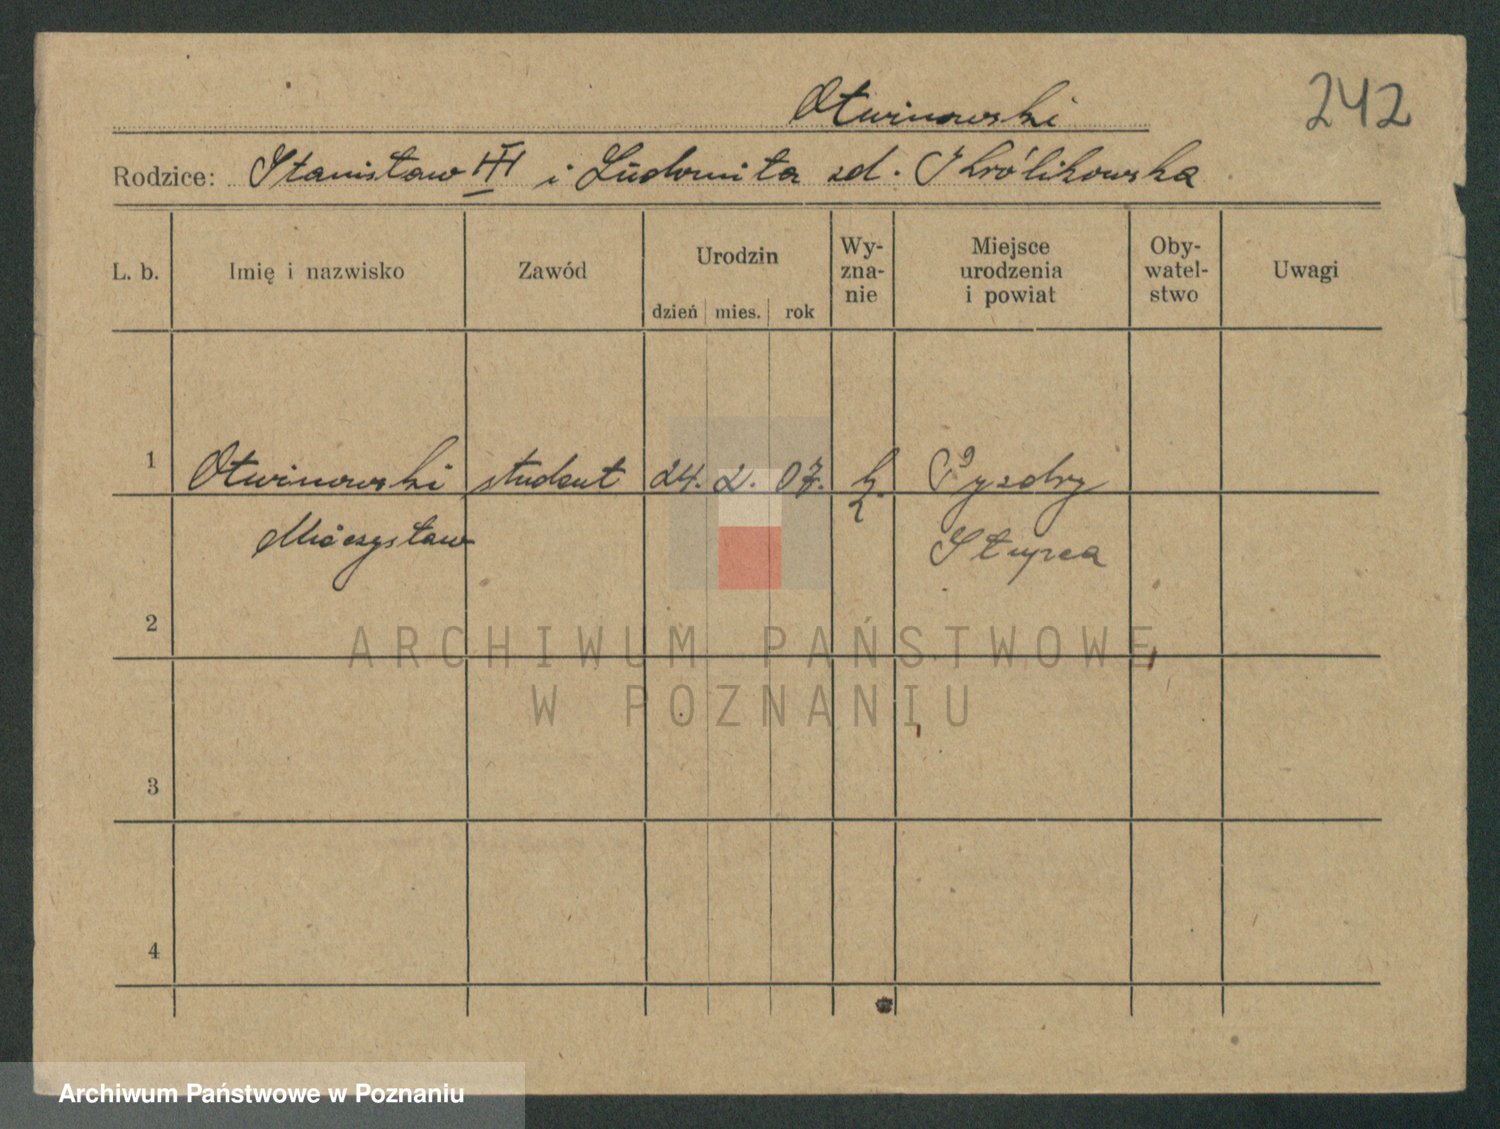 Otwinowski
242
Rodzice: Stanisław i Ludomiła zd. Królikowska
L. b.
Imię i nazwisko
Zawód
Urodzin
dzień mies. rok
Wy-
zna-
nie
Miejsce
urodzenia
i powiat
Oby-
watel-
stwo
Uwagi
1 Otwinowski student 24. 2. 07. Pyzdry
Mieczysław Słupca
2
3
4
ARCHIWUM PAŃSTWOWE
W POZNANIU
Archiwum Państwowe w Poznaniu